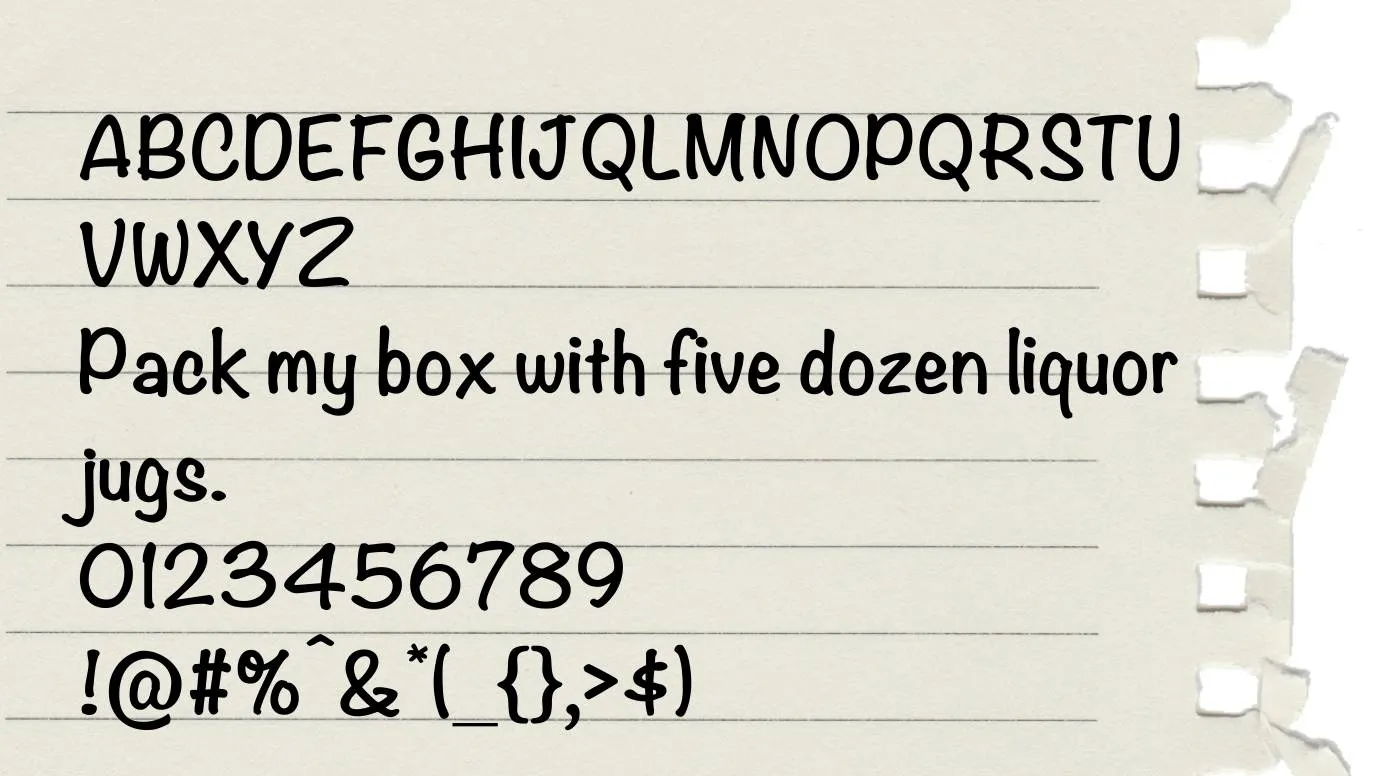 ABCDEFGHIJQLMNOPQRSTU
VWXYZ
Pack my box with five dozen liquor
jugs.
0123456789
!@#%^&*(_{},>$)